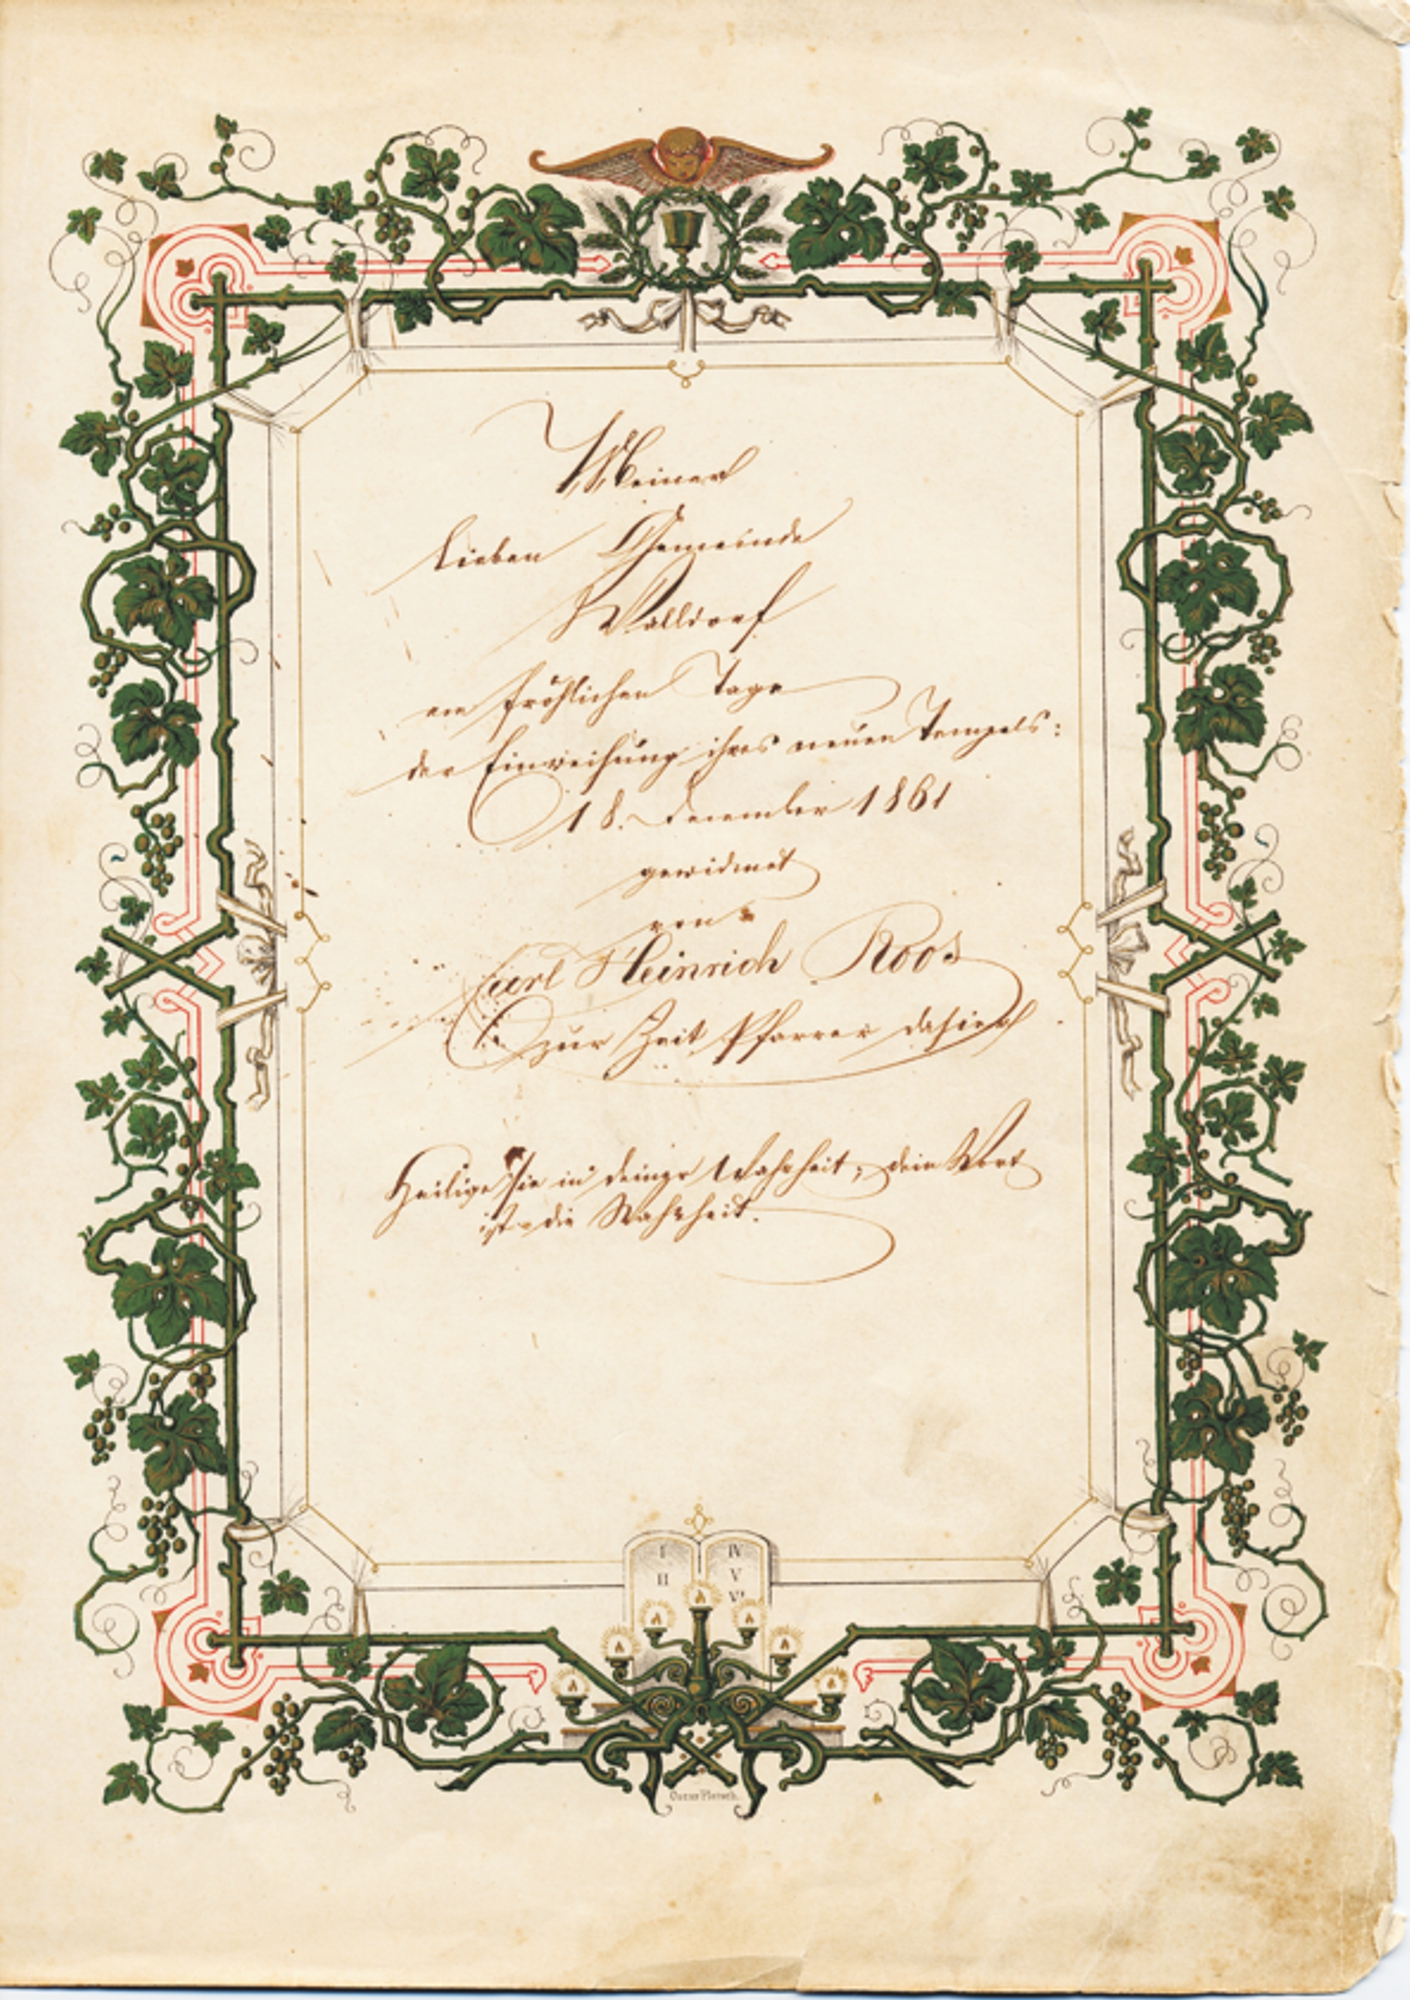 Meiner
lieben Gemeinde
Walldorf
am fröhlichen Tage
der Einweihung ihres neuen Tempels:
18. December 1861
gewidmet
von
Carl Heinrich Roos
zur Zeit Pfarrer dahier
Heilige sie in deiner Wahrheit; dein Wort
ist die Wahrheit.
I IV
II V
VI
Oscar Pletsch.